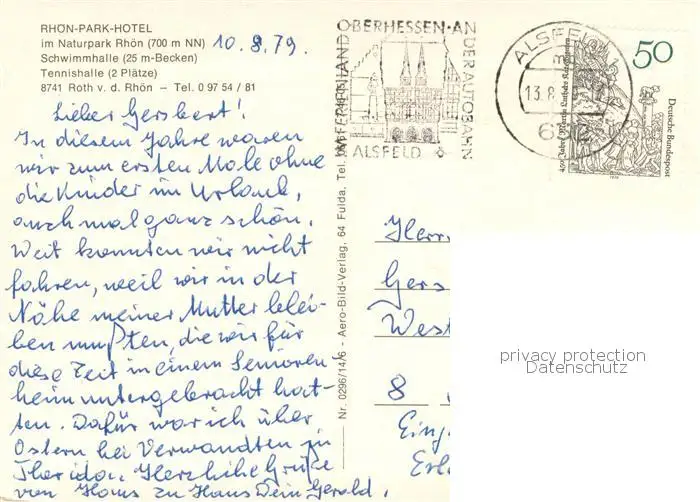 RHÖN-PARK-HOTEL
im Naturpark Rhön (700 m NN)
Schwimmhalle (25 m-Becken)
Tennishalle (2 Plätze)
8741 Roth v. d. Rhön – Tel. 0 97 54 / 81
10.8.79.
Lieber Gersbert!
In diesem Jahre waren
wir zum ersten Male ohne
die Kinder im Urlaub,
auch mal ganz schön.
Weit konnten wir nicht
fahren, weil wir in der
Nähe meiner Mutter blei-
ben mußten, die wir für
diese Zeit in einem Senioren-
heim untergebracht hat-
ten. Dafür war ich über
Ostern bei Verwandten in
Florida. Herzliche Grüße
von Haus zu Haus Dein Gerold.
Nr. 0296/14/6 - Aero-Bild-Verlag, 64 Fulda, Tel.
OBERHESSEN·AN
DER AUTOBAHN
ALSFELD
ALSFELD 1
13.8.
50
Deutsche Bundespost
450 Jahre Martin Luthers Katechismus
1979
Herrn
Gers
West
8
Eing
Erl
privacy protection
Datenschutz